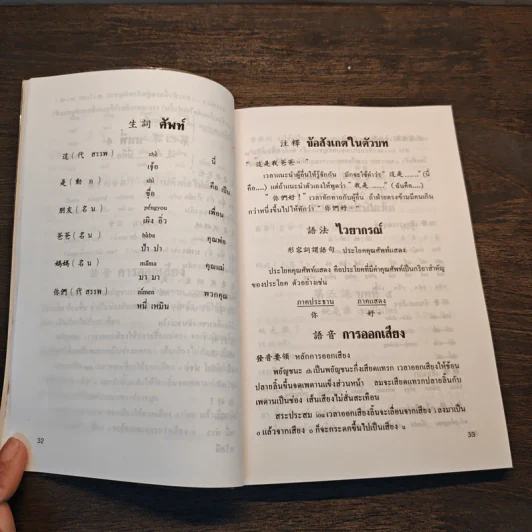 生詞 ศัพท์
這 (代 สรรพ) zhè นี่
เจ้อ
是 (動 ก) shì คือ เป็น
ซื่อ
朋友 (名 น) péngyou เพื่อน
เผิง อิ่ว
爸爸 (名 น) bàba คุณพ่อ
ป้า ปา
媽媽 (名 น) māma คุณแม่
มา มา
你們 (代 สรรพ) nǐmen พวกคุณ
หนี่ เหมิน
32
注釋 ข้อสังเกตในตัวบท
" 這是我爸爸 "
เวลาแนะนำผู้อื่นให้รู้จักกัน มักจะใช้คำว่า " 這是 ........" (นี่
คือ.....) แต่ถ้าแนะนำตัวเองให้พูดว่า " 我是 ........" (ฉันคือ....)
" 你們好! " เวลาทักทายกับผู้อื่น ถ้าฝ่ายตรงข้ามมีคนเกิน
กว่าหนึ่งขึ้นไปให้ทักว่า " 你們好 "
語法 ไวยากรณ์
形容詞謂語句 ประโยคคุณศัพท์แสดง
ประโยคคุณศัพท์แสดง คือประโยคที่มีคำคุณศัพท์เป็นกริยาสำคัญ
ของประโยค ตัวอย่างเช่น
ภาคประธาน ภาคแสดง
你 好
語音 การออกเสียง
發音要領 หลักการออกเสียง
พยัญชนะ เป็นพยัญชนะกึ่งเสียดแทรก เวลาออกเสียงให้ช้อน
ปลายลิ้นขึ้นจดเพดานแข็งส่วนหน้า ลมจะเสียดแทรกปลายลิ้นกับ
เพดานเป็นช่อง เส้นเสียงไม่สั่นสะเทือน
สระประสม iou เวลาออกเสียงลิ้นจะเลื่อนจากเสียง i ลงมาเป็น
o แล้วจากเสียง o ก็จะกระดกขึ้นไปเป็นเสียง u